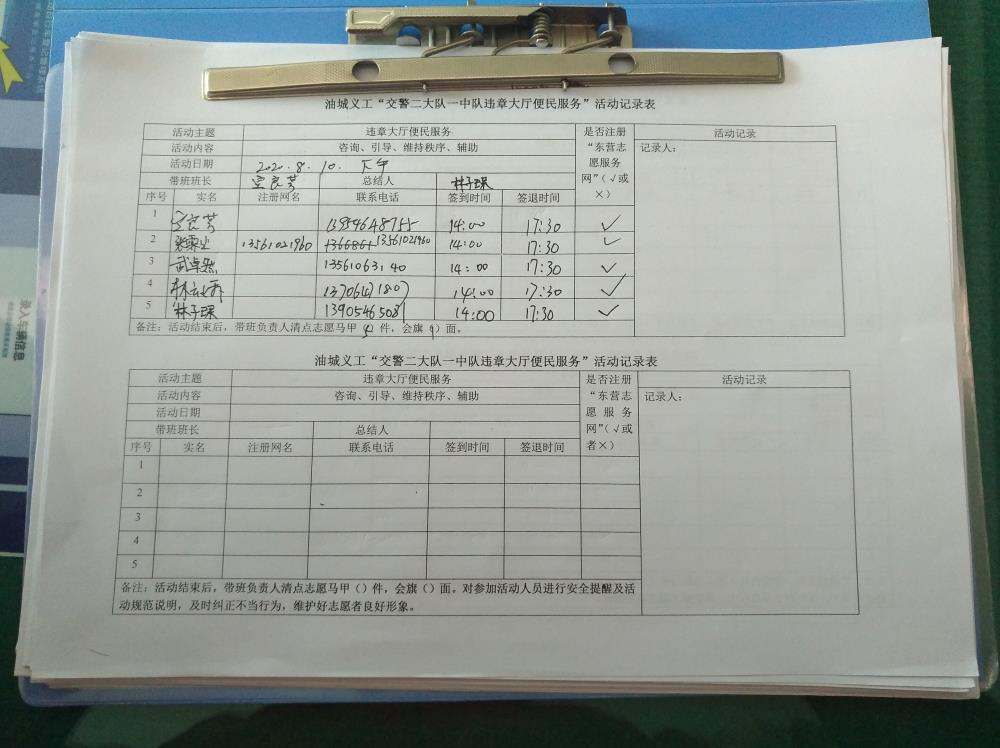 油城义工“交警二大队一中队违章大厅便民服务”活动记录表
活动主题 违章大厅便民服务 是否注册“东营志愿服务网”（√或×） 活动记录
活动内容 咨询、引导、维持秩序、辅助 记录人：
活动日期 2020.8.10. 下午
带班班长 总结人 林子琛
序号 实名 注册网名 联系电话 签到时间 签退时间
1 13954648755 14:00 17:30 ✓
2 13561021960 13561021960 14:00 17:30 ✓
3 武卓然 13561063140 14:00 17:30 ✓
4 13706471807 14:00 17:30 ✓
5 林子琛 13905465081 14:00 17:30 ✓
备注：活动结束后，带班负责人清点志愿马甲（）件，会旗（）面。
油城义工“交警二大队一中队违章大厅便民服务”活动记录表
活动主题 违章大厅便民服务 是否注册“东营志愿服务网”（√或者×） 活动记录
活动内容 咨询、引导、维持秩序、辅助 记录人：
活动日期
带班班长 总结人
序号 实名 注册网名 联系电话 签到时间 签退时间
1
2
3
4
5
备注：活动结束后，带班负责人清点志愿马甲（）件，会旗（）面。对参加活动人员进行安全提醒及活
动规范说明，及时纠正不当行为，维护好志愿者良好形象。
录入车辆信息